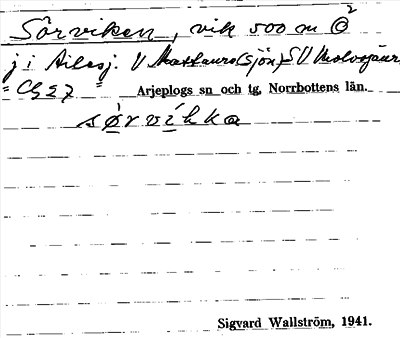 Sörviken, vik 500 m
j i Ailesj. V Mattaure (sjön) SV
Arjeplogs sn och tg, Norrbottens län.
sørvihka
Sigvard Wallström, 1941.